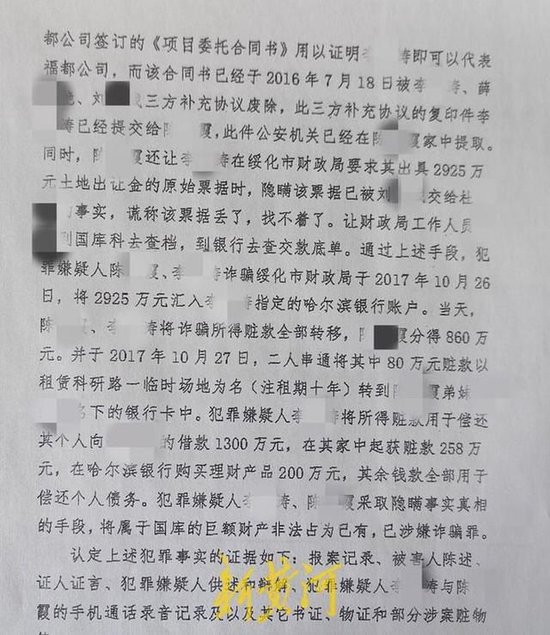 都公司签订的《项目委托合同书》用以证明李 涛即可以代表
福都公司，而该合同书已经于2016年7月18日被李 涛、薛
、刘 三方补充协议废除，此三方补充协议的复印件李
涛已经提交给陈 霞，此件公安机关已经在陈 霞家中提取。
同时，陈 霞还让李 涛在绥化市财政局要求其出具2925万
元土地出让金的原始票据时，隐瞒该票据已被刘 交给杜
事实，谎称该票据丢了，找不着了。让财政局工作人员
到国库科去查档，到银行去查交款底单。通过上述手段，犯
罪嫌疑人陈 霞、李 涛诈骗绥化市财政局于2017年10月26
日，将2925万元汇入李 涛指定的哈尔滨银行账户。当天，
陈 、李 涛将诈骗所得赃款全部转移，陈 霞分得860万
元。并于2017年10月27日，二人串通将其中80万元赃款以
租赁科研路一临时场地为名（注租期十年）转到陈 霞弟妹
名下的银行卡中。犯罪嫌疑人李 涛将所得赃款用于偿还
其个人向 的借款1300万元，在其家中起获赃款258万
元，在哈尔滨银行购买理财产品200万元，其余钱款全部用于
偿还个人债务。犯罪嫌疑人李 涛、陈 霞采取隐瞒事实真相
的手段，将属于国库的巨额财产非法占为已有，已涉嫌诈骗罪。
认定上述犯罪事实的证据如下：报案记录、被害人陈述、
证人证言、犯罪嫌疑人供述和辩解、犯罪嫌疑人李 涛与陈
霞的手机通话录音记录及以及其它书证、物证和部分涉案赃物
新黄河